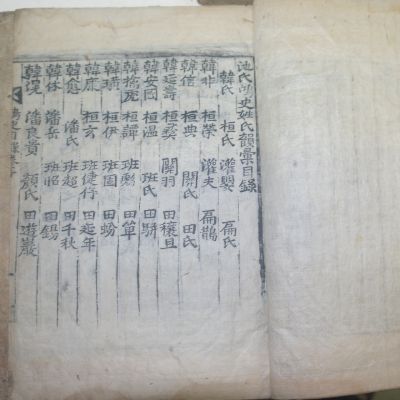 池氏鴻史姓氏韻彙目錄
韓氏 桓氏 灌嬰 扁氏
韓非 桓榮 灌夫 扁鵲
韓信 桓典 關氏 田氏
韓延壽 桓彛 關羽 田穰苴
韓安國 桓溫 班氏 田騈
韓擒虎 桓譚 班彪 田單
韓瑗 桓伊 班固 田蚡
韓康 桓玄 班婕伃 田延年
韓愈 潘氏 班超 田千秋
韓休 潘岳 班昭 田錫
韓琨 潘良貴 顏氏 田遊巖